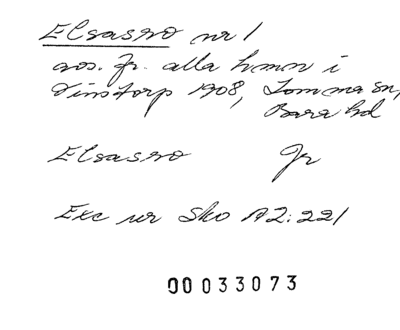 Elsasro nr 1
avs. fr. alla hmn i
Vinstorp 1908, Lomma sn,
Bara hd
Elsasro Jr
Exc ur Sko A2:221
00033073